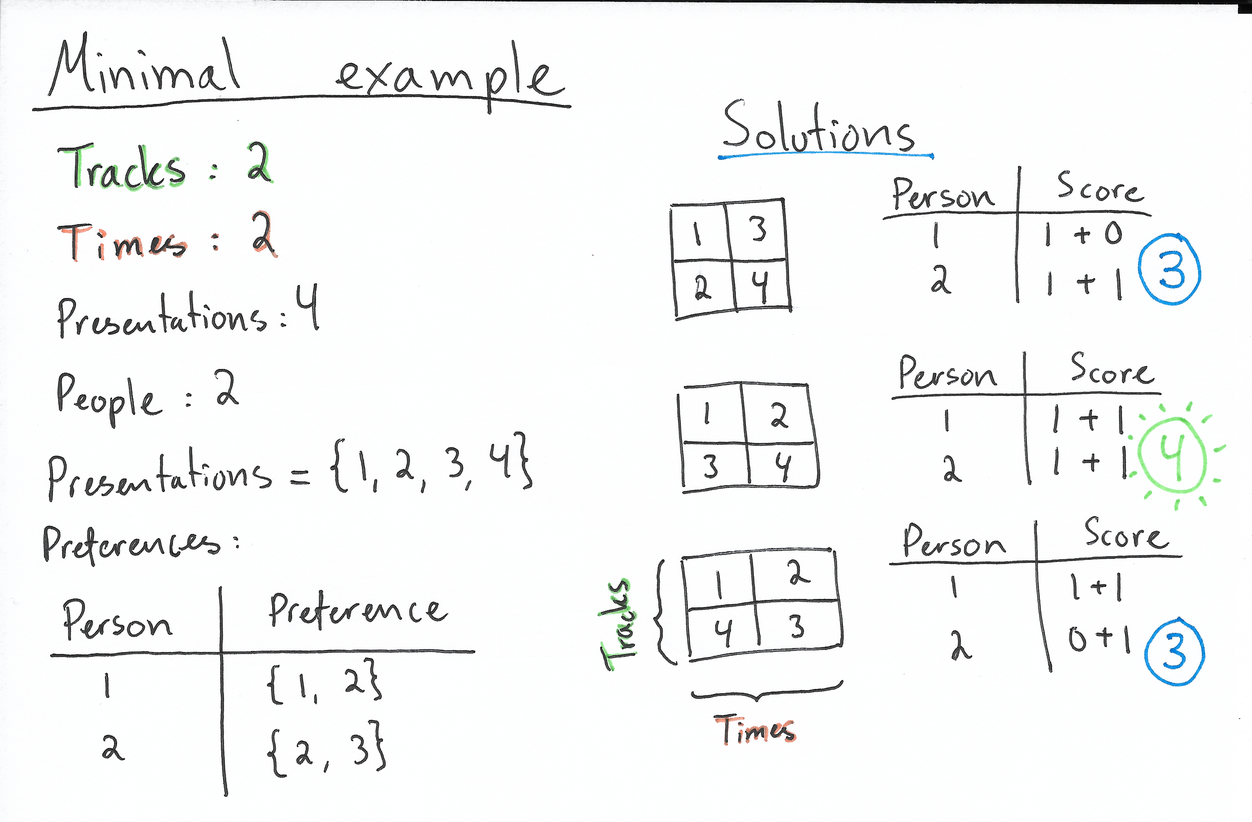 Minimal example
Tracks : 2
Times : 2
Presentations : 4
People : 2
Presentations = {1, 2, 3, 4}
Preferences :
Person Preference
1 {1, 2}
2 {2, 3}
Solutions
1 3
2 4
Person Score
1 1 + 0
2 1 + 1
3
1 2
3 4
Person Score
1 1 + 1
2 1 + 1
4
Tracks
1 2
4 3
Times
Person Score
1 1+1
2 0+1
3